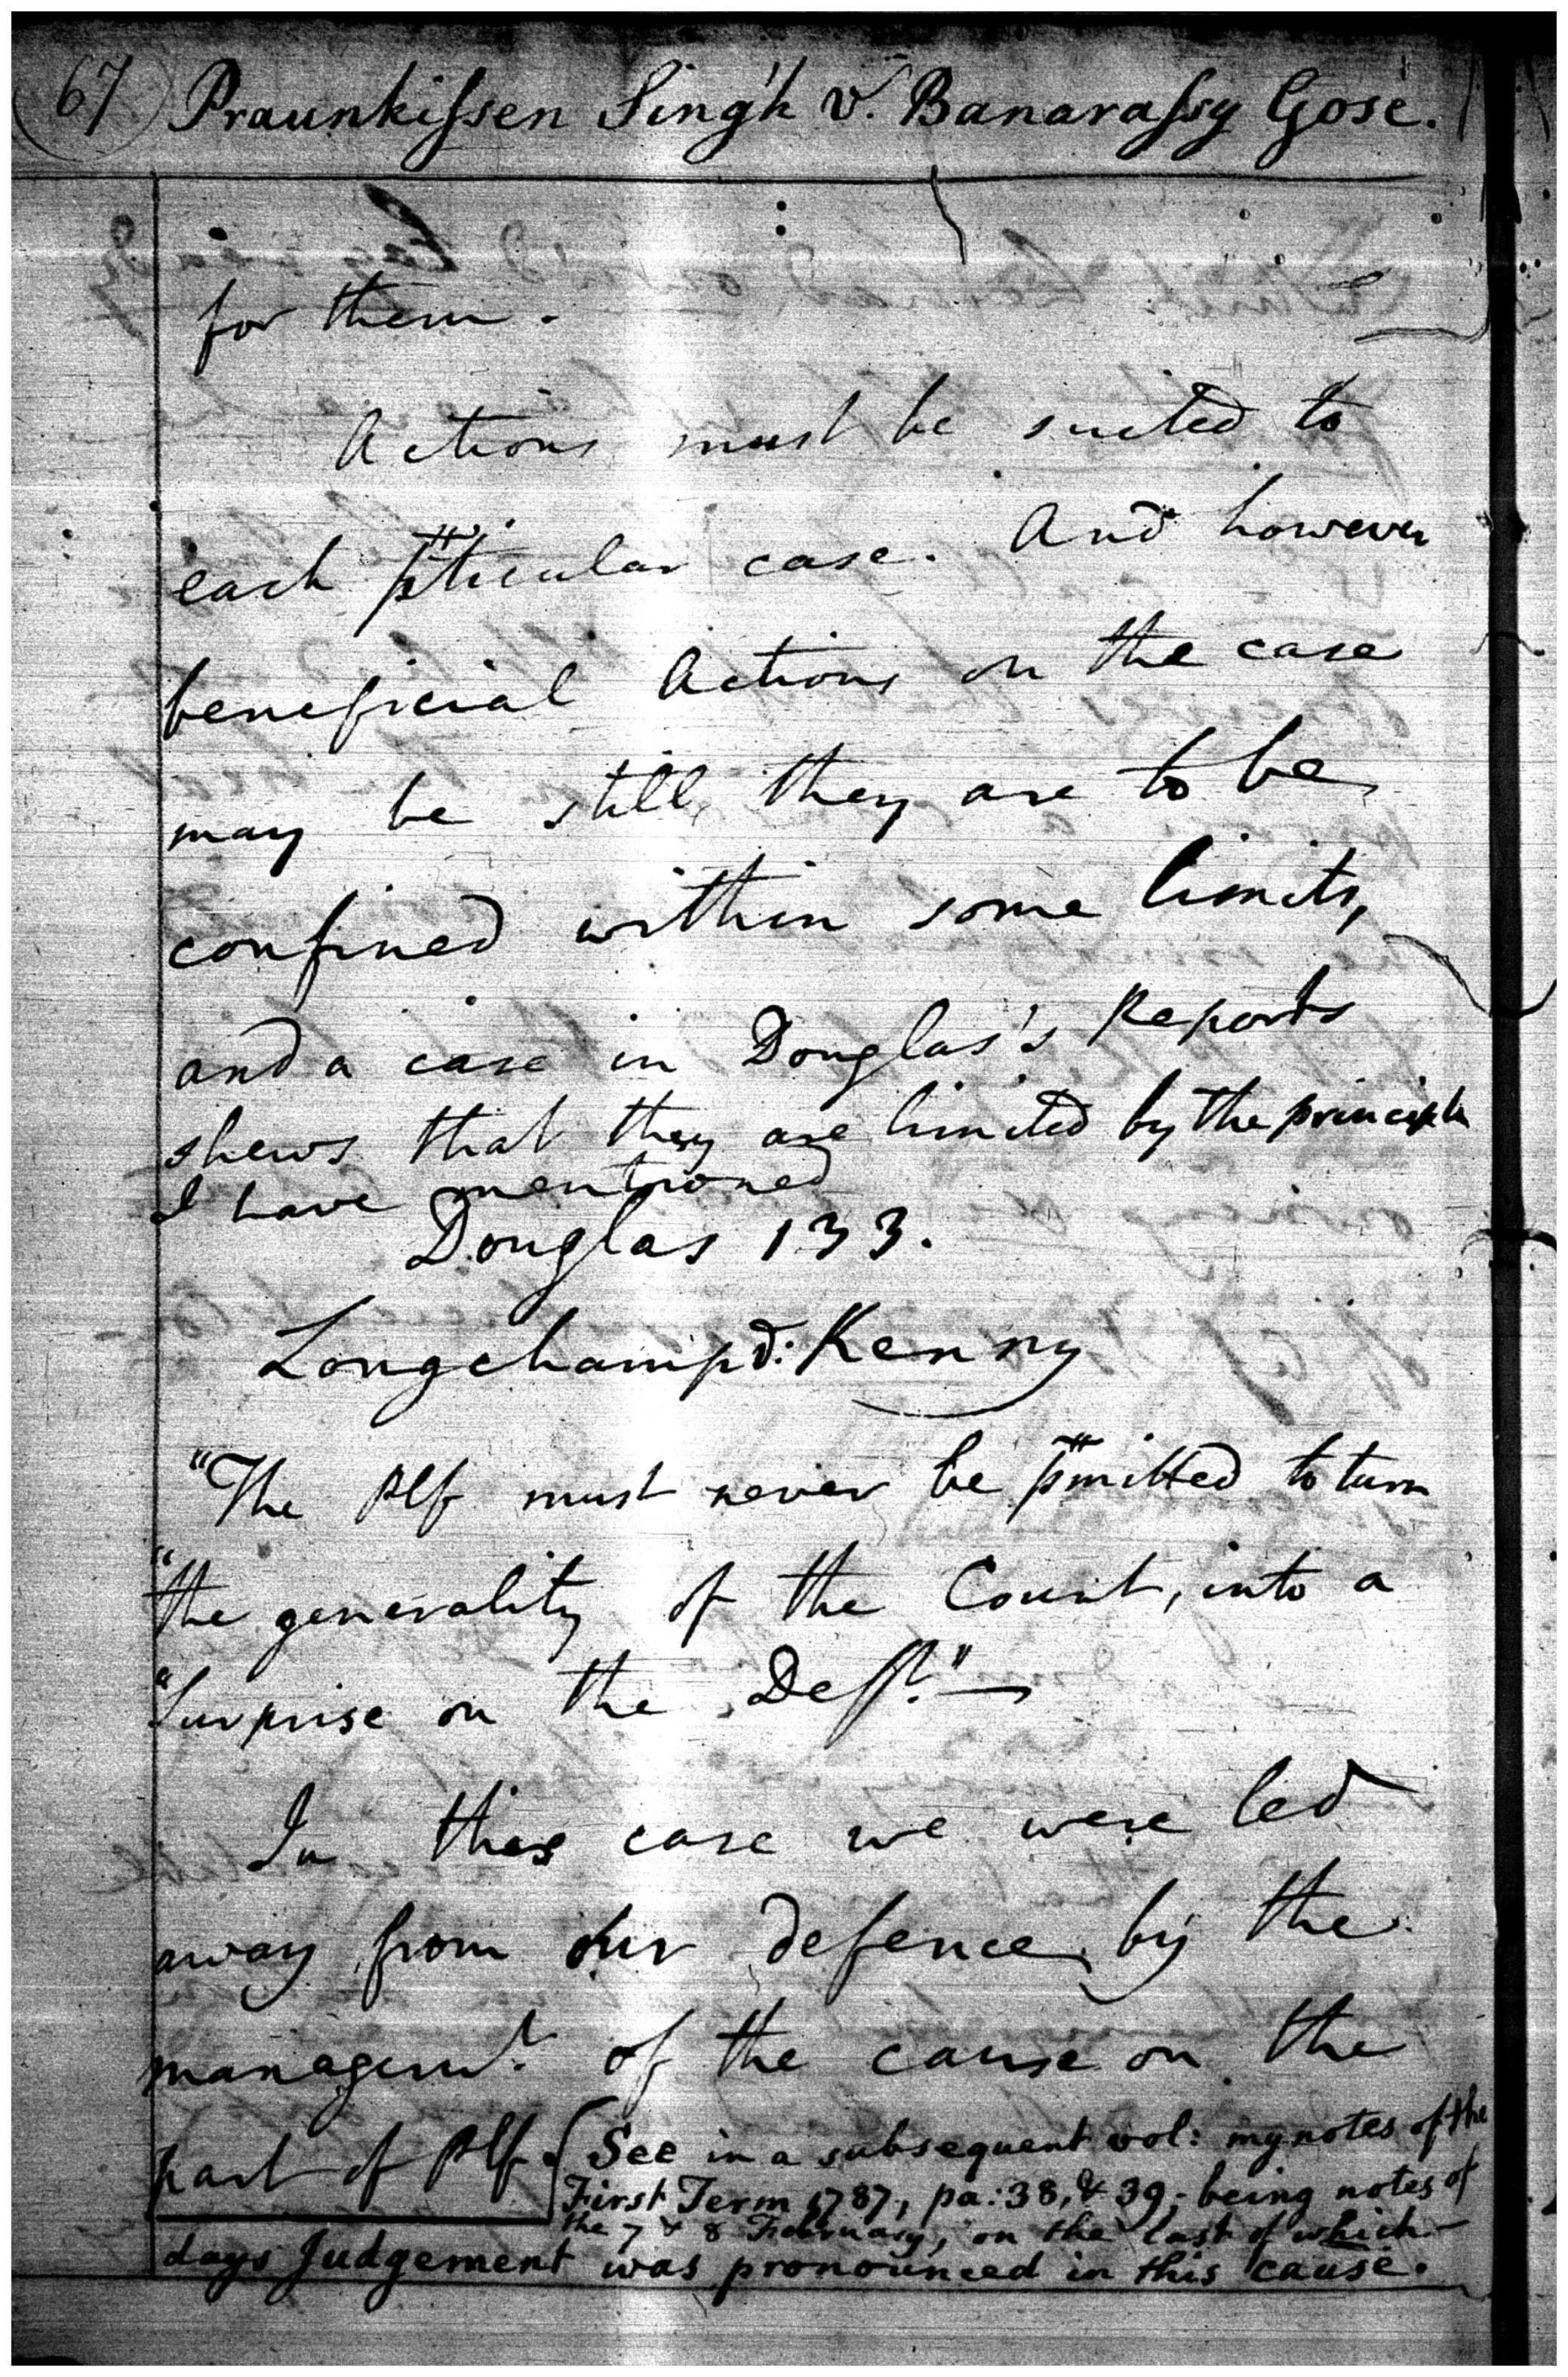 67 Praunkissen Singh v. Banarassy Gose.
for them.
Actions must be suited to
each pticular case. And however
beneficial Actions on the case
may be still, they are to be
confined within some limits,
and a case in Douglas's Reports
shews that they are limited by the principle
I have mentioned
Douglas 133.
Longchamp v: Kenny
"The Plf must never be pmitted to turn
"the generality of the Count, into a
"Surprise on the Deft."—
In this case we were led
away from our defence by the
managemt. of the cause on the
part of Plf. { See in a subsequent vol: my notes of the
First Term 1787, pa: 38, & 39; being notes of
the 7 & 8 February, on the last of which
days Judgement was pronounced in this cause.